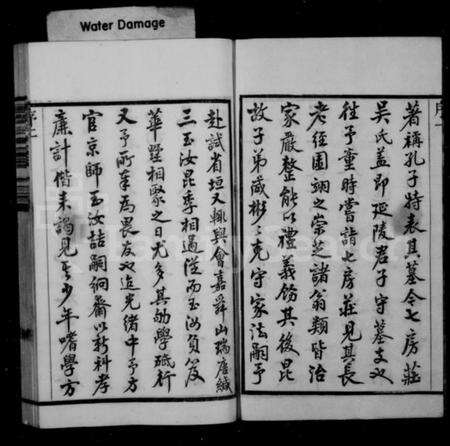 Water Damage
序一
著稱孔子特表其墓令七房莊
吳氏蓋即延陵君子守墓支也
往予童時嘗詣七房莊見其長
老径圃炳之崇芝諸翁類皆治
家嚴整能以禮義飭其後昆
故子弟咸彬彬克守家法嗣予
赴試省垣又輒與會嘉舜山瑞唐緘
三玉汝昆季相過從而玉汝負笈
華墅相聚之日尤多其劬學砥行
又予所奉為畏友也迨光緒中予方
官京師玉汝喆嗣絅齋以新科孝
廉計偕來謁見其少年嗜學方
序二